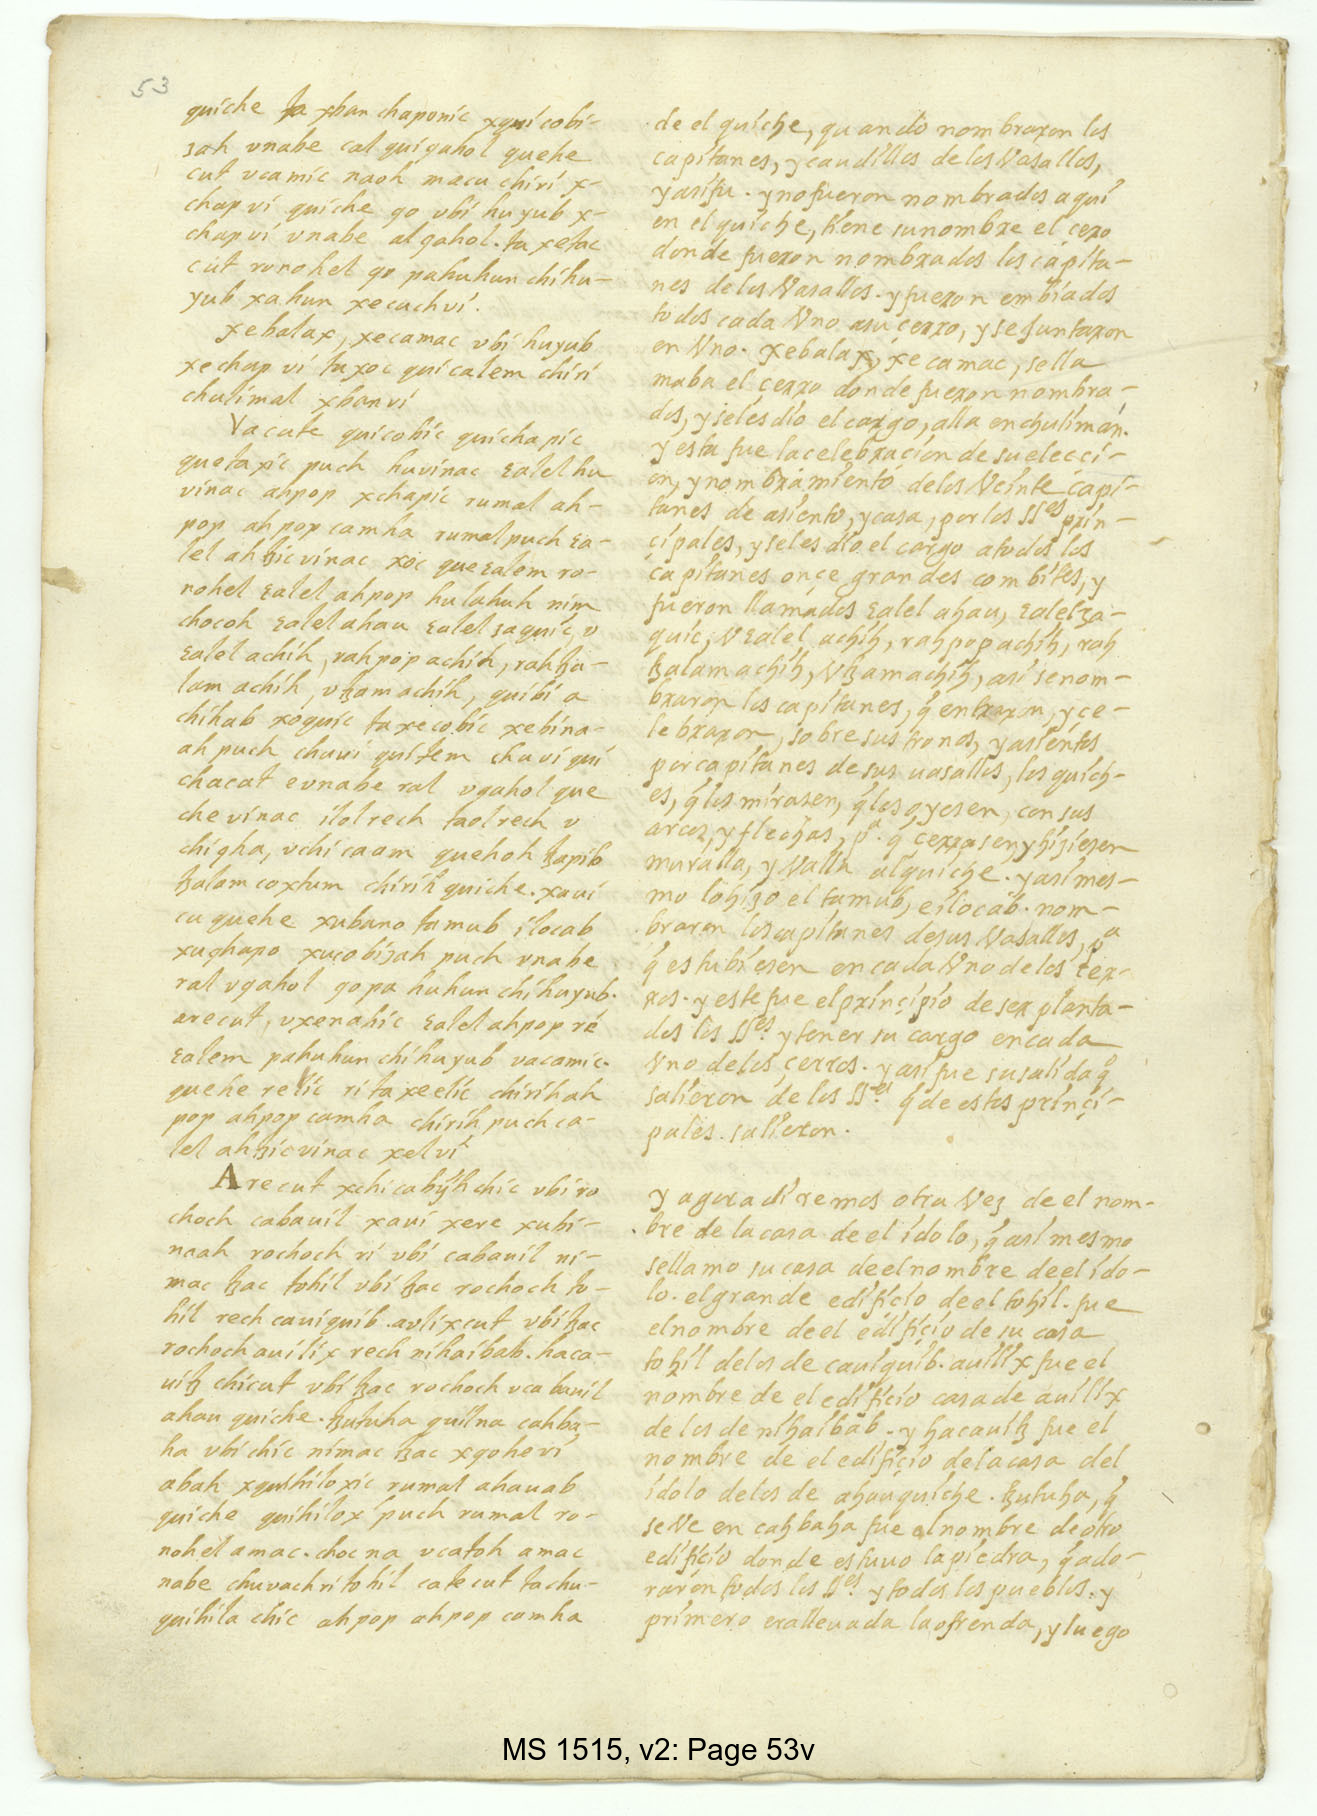 53
quiche ta xban chaponic xquicobi-
ꜫah vnabe cal quiqahol quehe
cut vcamic naoh macu chiri x-
chap vi quiche qo vbi huyub x-
chap vi vnabe al qahol. ta xetac
cut ronohel qo pahuhun chihu-
yub xahun xecuch vi.
xebalax, xecamac vbi huyub
xechap vi ta xoc quicalem chiri
chulimal xban vi
Vacute quicobic quichapic
quetaxic puch huvinac ꜫalel hu
vinac ahpop xchapic rumal ah-
pop ahpop camha rumal puch ꜫa-
lel ahꜩic vinac xoc queꜫalem ro-
nohel ꜫalel ahpop hulahuh nim
chocoh ꜫalel ahau ꜫalel ꜫaquic, v
ꜫalel achih, rahpop achih, rahꜩa-
lam achih, vꜩam achih, quibi a
chihab xoquic ta xecobic xebina-
ah puch chuvi quitem chuvi qui
chacat evnabe ral vqahol que
che vinac ilol rech taol rech v
chiqha, vchicaam quehoh ꜩapib
ꜩalam coxtum chirih quiche. xavi
cu quehe xubano tamub ilocab
xuqhapo xucobiꜫah puch vnabe
ral vqahol qo pa huhun chihuyub.
arecut, vxenahic ꜫalel ahpop ré
ꜫalem pahuhun chihuyub vacamic.
quehe relic ri ta xeelic chirih ah
pop ahpop camha chirih puch ca-
lel ahꜩic vinac xel vi
Arecut xchicabijh chic vbi ro
choch cabauil xaui xere xubi-
naah rochoch ri vbi cabauil ni-
mac ꜩac tohil vbi ꜩac rochoch to-
hil rech cauiquib. avlix cut vbi ꜩac
rochoch auilix rech nihaibab. haca-
uiꜩ chicut vbi ꜩac rochoch vcabauil
ahau quiche. ꜩutuha quilna cahba-
ha vbi chic nimac ꜩac xqohe vi
abah xquihiloxic rumal ahauab
quiche quihilox puch rumal ro-
nohel amac. chocna vcatoh amac
nabe chuvach ri tohil catecut tachu-
quihila chic ahpop ahpop camha
de el quiche, quando nombraron los
capitanes, y caudillos de los Vasallos,
y asi fu. y no fueron nombrados aqui
en el quiche, tiene su nombre el cero
donde fueron nombrados los capita-
nes de los Vasallos. y fueron embiados
todos cada Vno asu cerro, y se juntaron
en Vno. xebalax, xecamac, sella
maba el çerro donde fueron nombra-
dos, y seles dio el cargo, alla en chuliman.
y esta fue la celebracion de su elecci-
on, y nombramiento delos Veinte capi-
tanes de asiento, y casa, por los SSes prin-
çipales, y seles dio el cargo atodos los
capitanes onçe grandes combites, y
fueron llamados ꜫalel ahau, ꜫalel ꜩa-
quic, Vꜫalel achih, rahpop achih, rah
ꜩalam achih, Vꜩam achih, asi se nom-
braron los capitanes, q̃ entraron, y ce-
lebraron, sobre sus tronos, y asientos
por capitanes de sus uasallos, los quich-
es, q̃ los mirasen, q̃ los oyesen, con sus
arcos, y flechas, pa. q̃ çerrasen, y hiziesen
muralla, y Valla al quiche. y asi mes-
mo lo hizo el tamub, e ilocab. nom-
braron los capitanes de sus Vasallos, pa
q̃ estubiesen en cada Vno de los cer-
ros. y este fue el prinçipio de ser planta-
dos los SSes. y tener su cargo en cada
Vno de los çerros. y asi fue su salida q̃
salieron de los SSes. q̃ de estos prinçi-
pales. salieron.
y agora diremos otra Vez de el nom-
bre de la casa de el idolo, q̃ asi mesmo
sellamo su casa de el nombre de el ido-
lo. el grande edificio de el tohil. fue
el nombre de el edifiçio de su casa
tohil delos de cauiquib. auilix fue el
nombre de el edificio casa de auilix
de los de nihaibab. y hacauiꜩ fue el
nombre de el edifiçio dela casa del
idolo delos de ahauquiche. ꜩutuha, q̃
se Ve en cahbaha fue el nombre de otro
edifiçio donde estuuo la piedra, q̃ ado-
raron todos los SSes. y todos los pueblos. y
primero era lleuada la ofrenda, y luego
MS 1515, v2: Page 53v